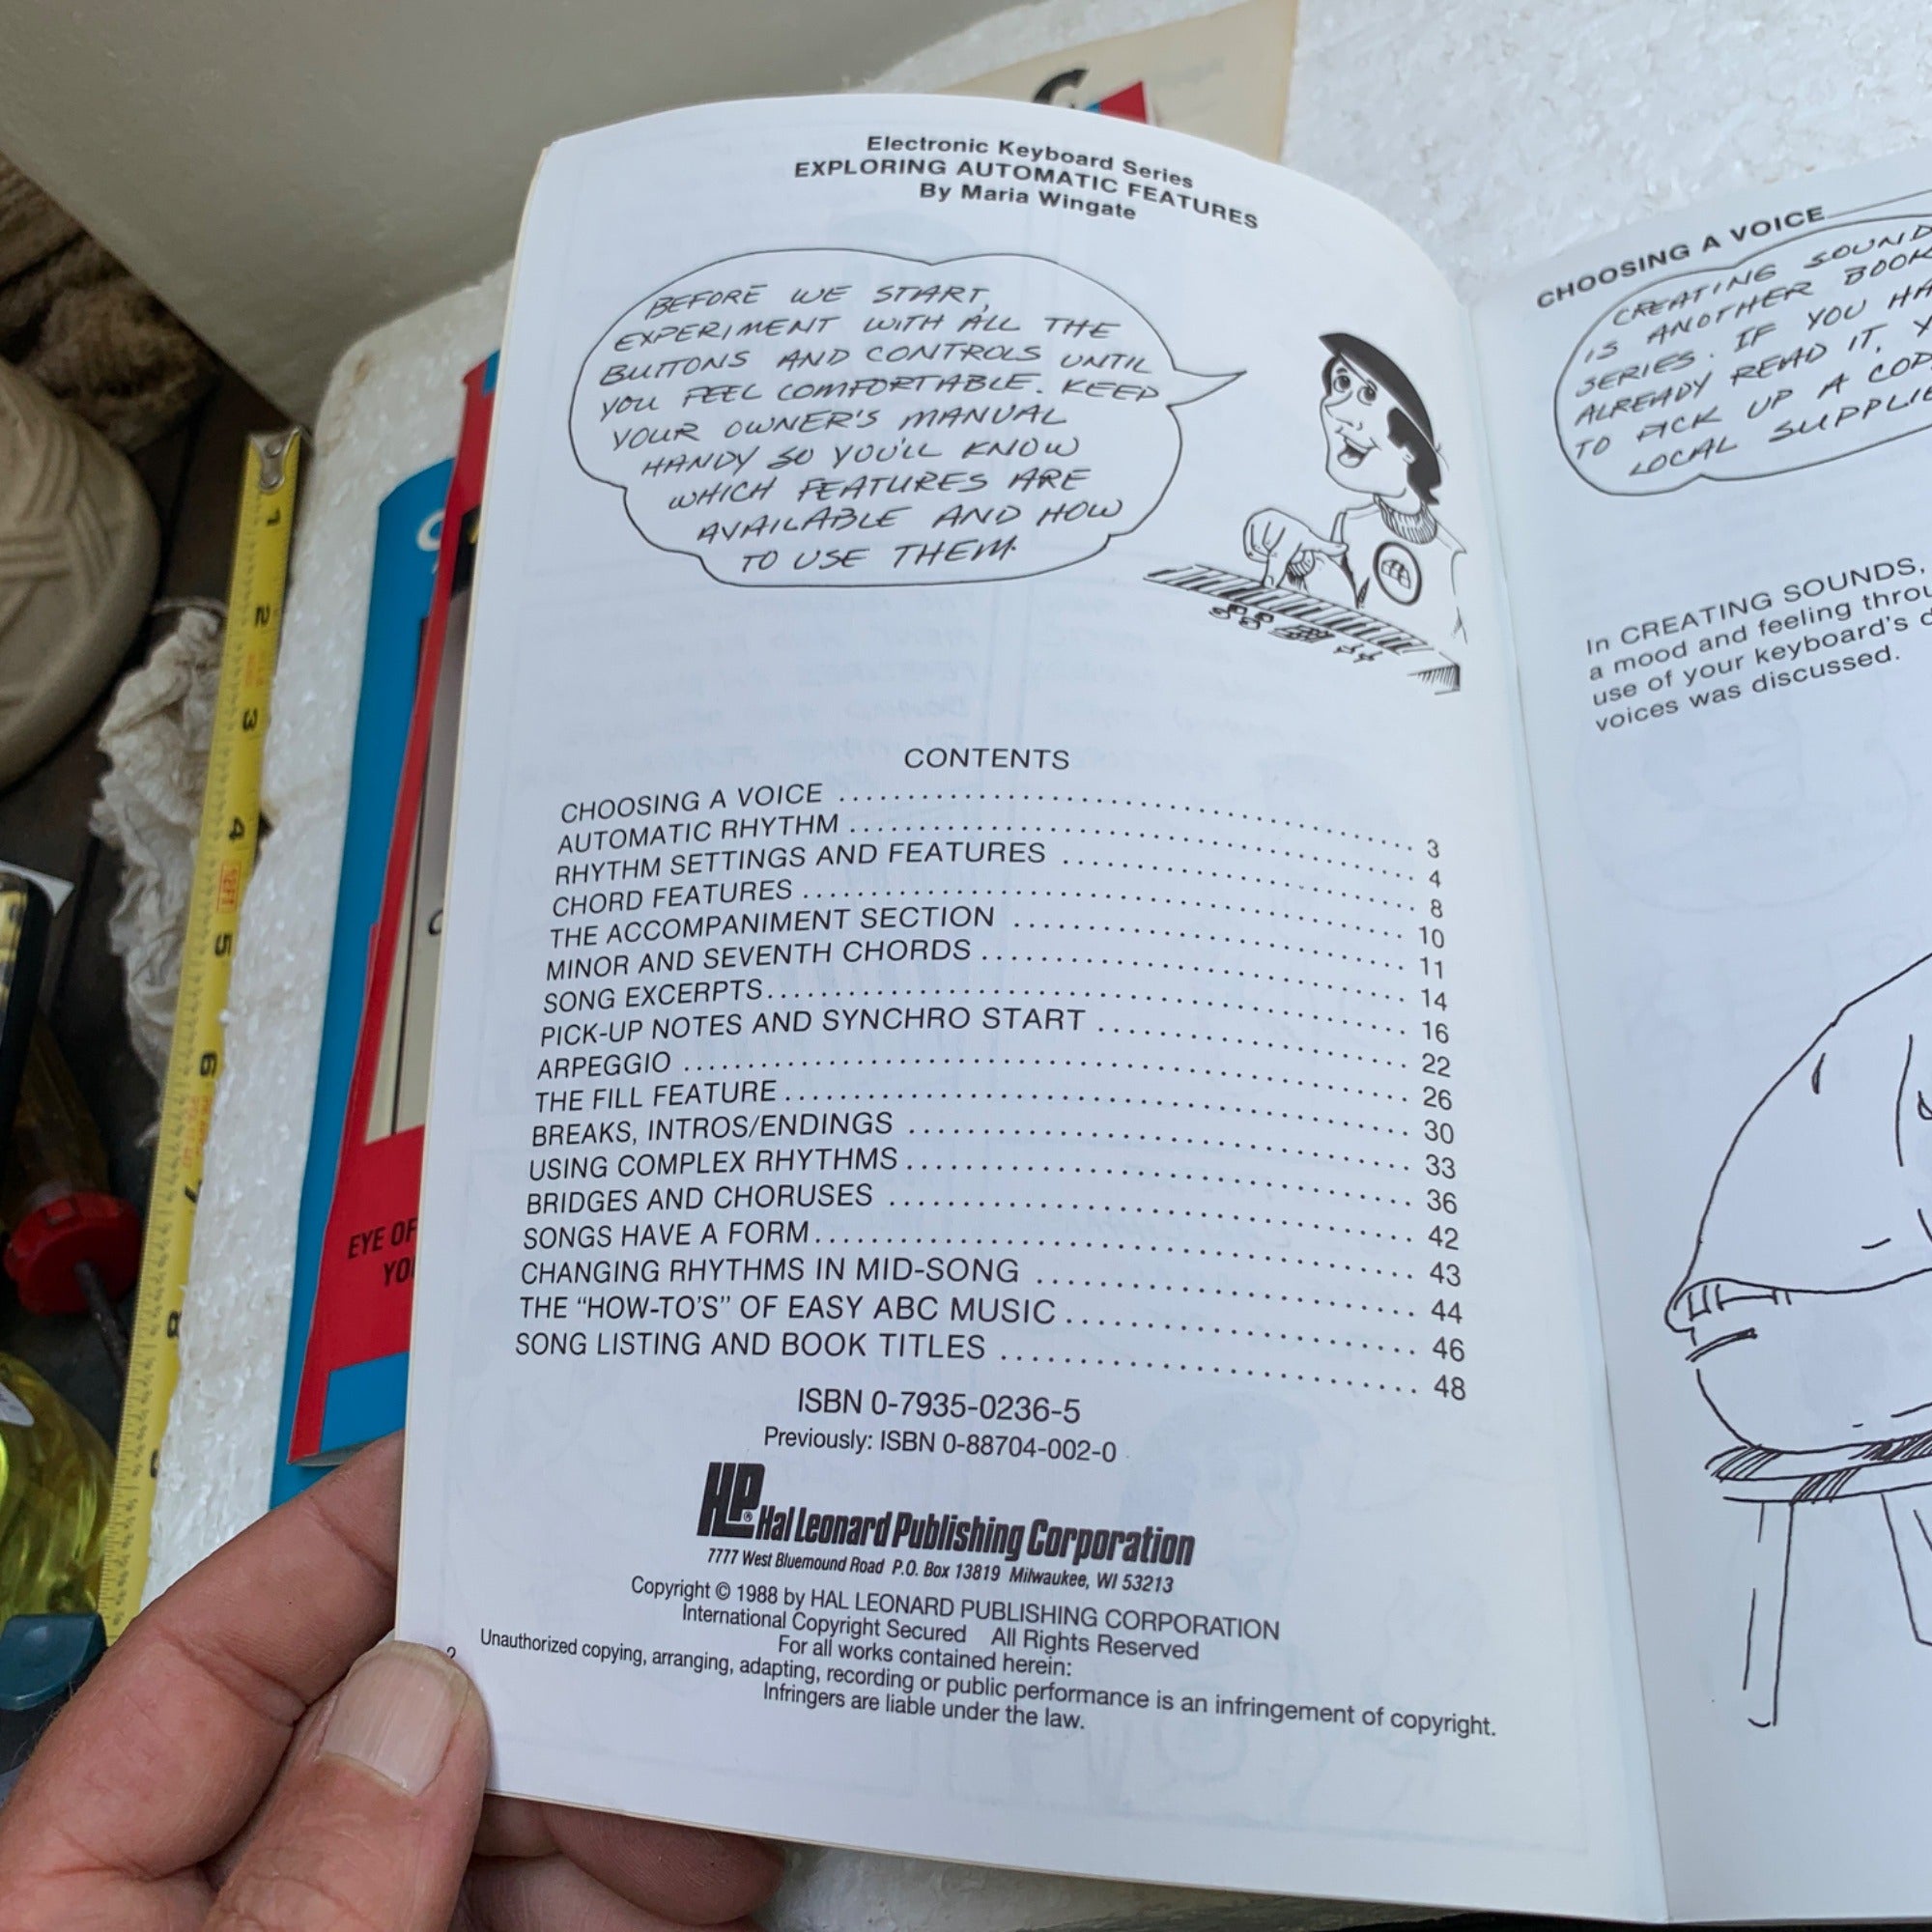 Electronic Keyboard Series
EXPLORING AUTOMATIC FEATURES
By Maria Wingate
BEFORE WE START,
EXPERIMENT WITH ALL THE
BUTTONS AND CONTROLS UNTIL
YOU FEEL COMFORTABLE. KEEP
YOUR OWNER'S MANUAL
HANDY SO YOU'LL KNOW
WHICH FEATURES ARE
AVAILABLE AND HOW
TO USE THEM.
CONTENTS
CHOOSING A VOICE 3
AUTOMATIC RHYTHM 4
RHYTHM SETTINGS AND FEATURES 8
CHORD FEATURES 10
THE ACCOMPANIMENT SECTION 11
MINOR AND SEVENTH CHORDS 14
SONG EXCERPTS 16
PICK-UP NOTES AND SYNCHRO START 22
ARPEGGIO 26
THE FILL FEATURE 30
BREAKS, INTROS/ENDINGS 33
USING COMPLEX RHYTHMS 36
BRIDGES AND CHORUSES 42
SONGS HAVE A FORM 43
CHANGING RHYTHMS IN MID-SONG 44
THE “HOW-TO'S” OF EASY ABC MUSIC 46
SONG LISTING AND BOOK TITLES 48
ISBN 0-7935-0236-5
Previously: ISBN 0-88704-002-0
HLP® Hal Leonard Publishing Corporation
7777 West Bluemound Road P.O. Box 13819 Milwaukee, WI 53213
Copyright © 1988 by HAL LEONARD PUBLISHING CORPORATION
International Copyright Secured All Rights Reserved
For all works contained herein:
Unauthorized copying, arranging, adapting, recording or public performance is an infringement of copyright.
Infringers are liable under the law.
2
CHOOSING A VOICE
CREATING SOUND
IS ANOTHER BOOK
SERIES. IF YOU HA
ALREADY READ IT, Y
TO PICK UP A COP
LOCAL SUPPLIE
In CREATING SOUNDS,
a mood and feeling throu
use of your keyboard's d
voices was discussed.
EYE OF
YO
1
2
3
4
5
6
7
8
9